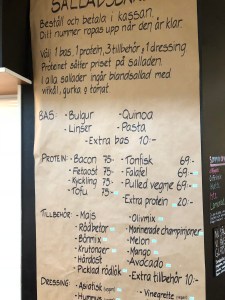 SALLADSBAR
Beställ och betala i kassan.
Ditt nummer ropas upp när den är klar.
Välj 1 bas, 1 protein, 3 tillbehör, 1 dressing
Proteinet sätter priset på salladen.
I alla sallader ingår blandsallad med
vitkål, gurka & tomat.
BAS: - Bulgur - Quinoa
- Linser - Pasta
- Extra bas 10:-
PROTEIN: - Bacon 75:- - Tonfisk 69:-
- Fetaost 75:- - Falafel 69:-
- Kyckling 75:- - Pulled vegme 69:-
- Tofu 75:- - Extra protein 20:-
TILLBEHÖR: - Majs - Olivmix
- Rödbetor - Marinerade champinjoner
- Bönmix - Melon
- Krutonger - Mango
- Hårdost - Avocado
- Picklad rödlök - Extra tillbehör 10:-
DRESSING: - Asiatisk - Vinegrette
- Hummus